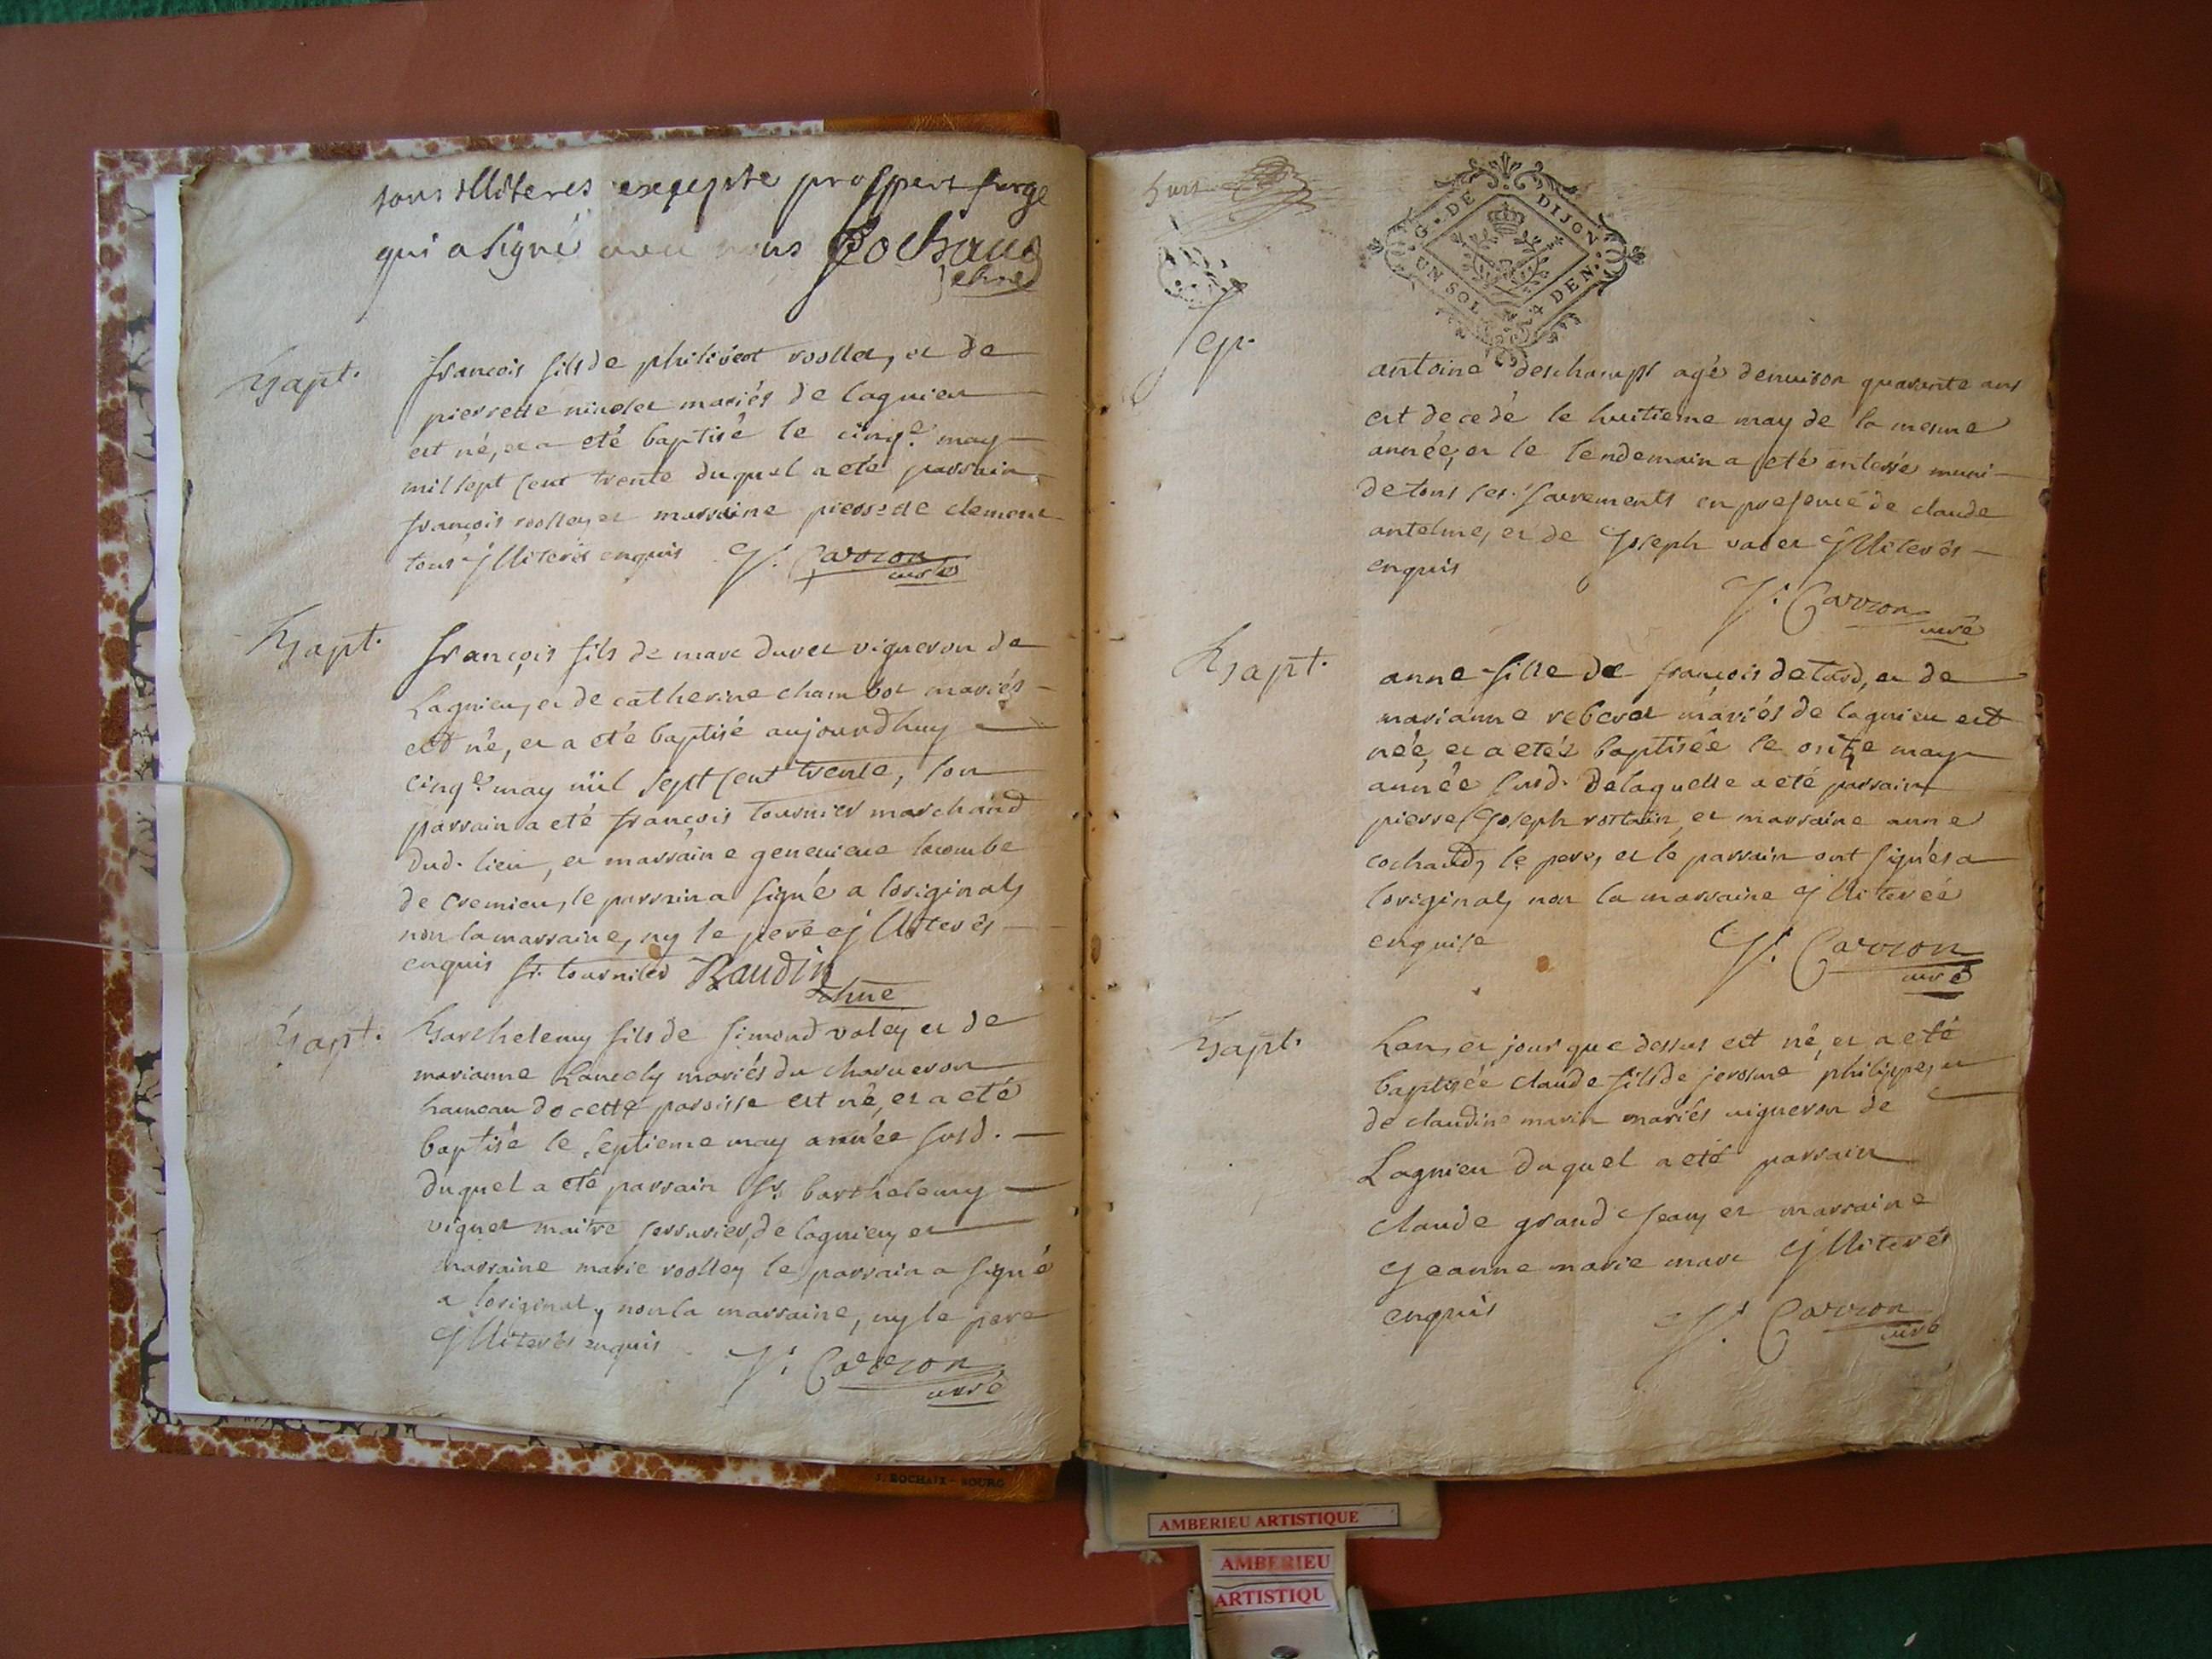 tous illiteres excepte prosper forge
qui a signé avec nous Cochand
Bapt.
françois fils de philibert roollet, et de
pierrette nicolet mariés de lagnieu
est né, et a eté baptisé le cinq.e may
mil sept cent trente duquel a eté parrain
françois roolley et marraine pierrette clement
tous jlliterés enquis J. Carron
curé
Bapt.
françois fils de marc duret vigneron de
Lagnieu, et de catherine chambot mariés
est né, et a eté baptisé aujourdhuy
cinq.e may mil sept cent trente, son
parrain a eté françois tournier marchand
dud. lieu, et marraine genevieve lacombe
de cremieu, le parrain a signé a loriginal,
non la marraine, ny le pere jlliterés
enquis fr. tournier Baudin
Bapt.
Barthelemy fils de simond valey et de
marianne mariés du charveron
hameau de cette paroisse est né, et a eté
baptisé le septieme may année susd.
duquel a eté parrain Sr. barthelemy
viguet maitre serrurier, de lagnieu, et
marraine marie roolley le parrain a signé
a loriginal, non la marraine, ny le pere
jlliterés enquis J. Carron
curé
huit
G. DE DIJON
UN SOL 4 DEN.
Sep.
antoine deschamps agé denviron quarante ans
est decedé le huitieme may de la mesme
année, et le lendemain a eté enterré muni
de tous ses sacrements en presence de claude
antelme, et de Joseph vadet jlliterés
enquis
J. Carron
curé
Bapt.
anne fille de françois detard, et de
marianne reberet mariés de lagnieu est
née, et a etéz baptisée le onze may
année susd. de laquelle a eté parrain
pierre Joseph rostain, et marraine anne
cochand, le pere, et le parrain ont signés a
loriginal, non la marraine jlliterée
enquise
J. Carron
curé
Bapt.
Lan, et jour que dessus est né, et a eté
baptisée claude fils de jerosme philippe, et
de claudine marin mariés vigneron de
Lagnieu duquel a eté parrain
claude grand Jean, et marraine
Jeanne marie marc jlliterés
enquis
J. Carron
curé
J. ROCHAIX - BOURG
AMBERIEU ARTISTIQUE
AMBERIEU
ARTISTIQU